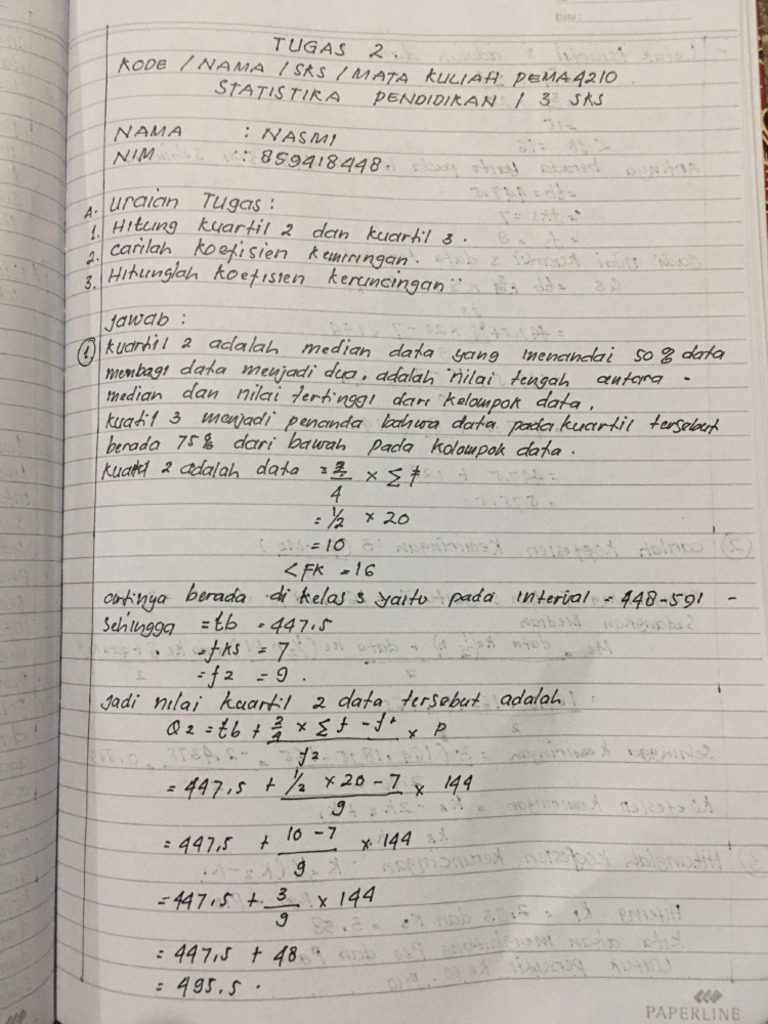 Date:
TUGAS 2.
KODE / NAMA / SKS / MATA KULIAH PEMA4210
STATISTIKA PENDIDIKAN / 3 SKS
NAMA : NASMI
NIM : 859418448.
A. uraian Tugas :
1. Hitung kuartil 2 dan kuartil 3.
2. carilah koefisien kemiringan.
3. Hitunglah koefisien keruncingan
Jawab :
① kuartil 2 adalah median data yang menandai 50 % data
membagi data menjadi dua. adalah nilai tengah antara -
median dan nilai tertinggi dari kelompok data.
kuatil 3 menjadi penanda bahwa data pada kuartil tersebut
berada 75% dari bawah pada kolompok data.
kuartil 2 adalah data = 2/4 × Σf
= 1/2 × 20
= 10
<FK = 16
artinya berada di kelas 3 yaitu pada interval = 448-591 -
Sehingga = tb = 447.5
= fks = 7
= f2 = 9.
Jadi nilai kuartil 2 data tersebut adalah
Q2 = tb + 2/4 × Σf - f^k / f2 × P
= 447,5 + 1/2 × 20 - 7 / 9 × 144
= 447,5 + 10 - 7 / 9 × 144
= 447,5 + 3/9 × 144
= 447,5 + 48
= 495,5.
PAPERLINE